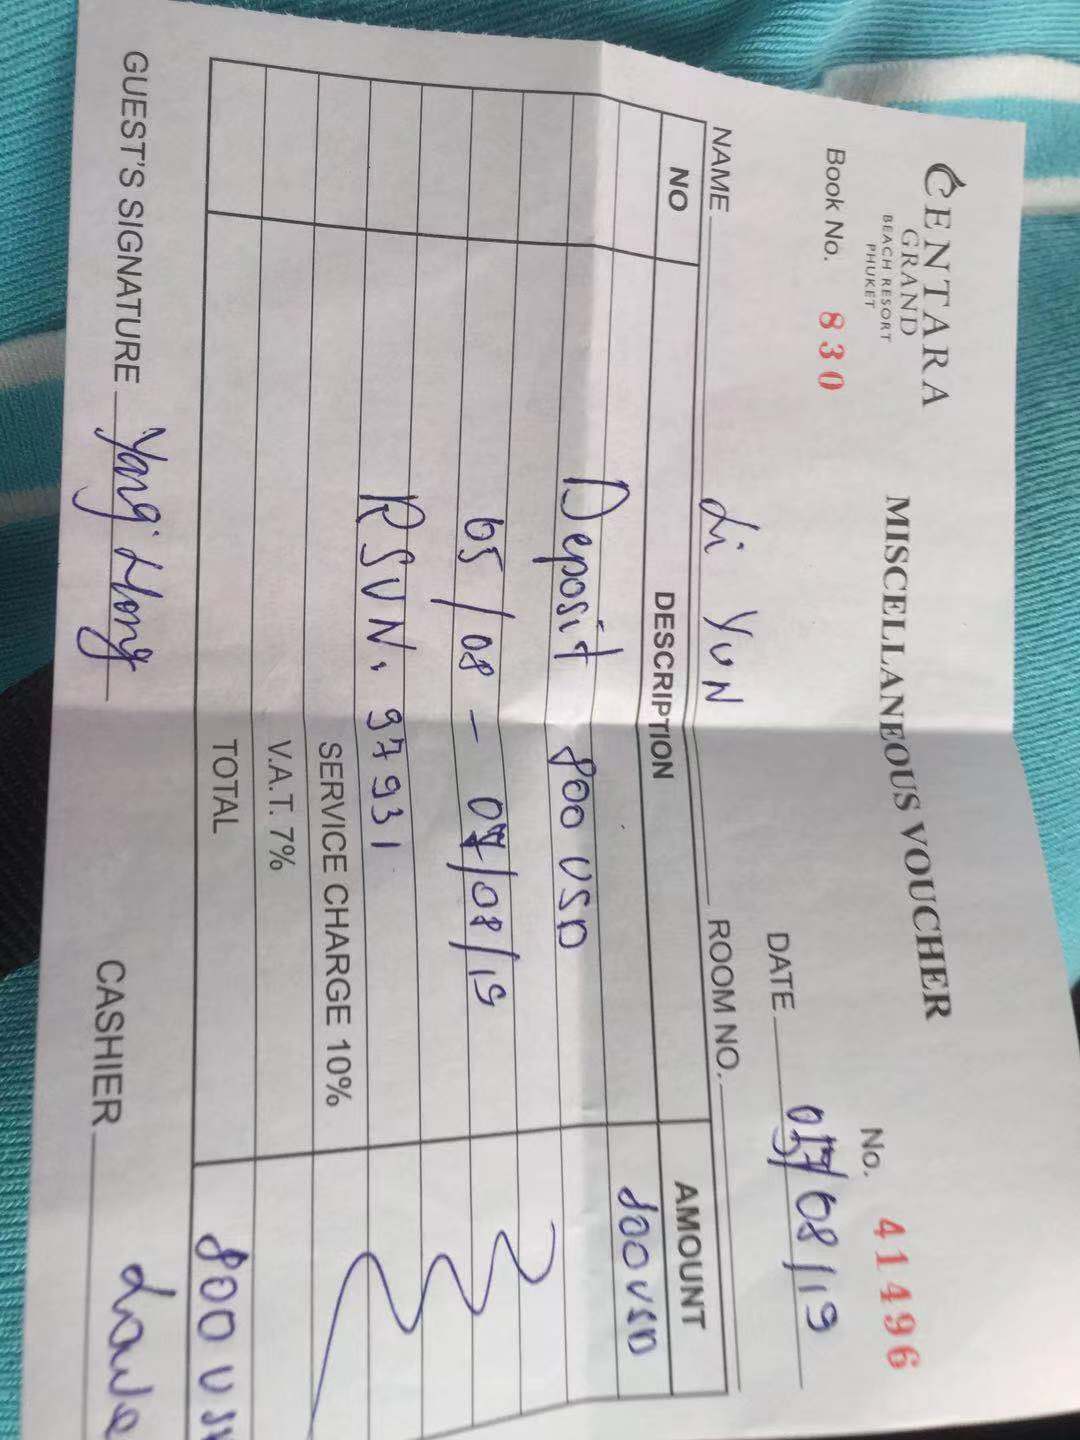 CENTARA
GRAND
BEACH RESORT
PHUKET
MISCELLANEOUS VOUCHER
Book No. 830
No. 41496
DATE /08/19
NAME Li YUN ROOM NO.
NO DESCRIPTION AMOUNT
800 USD
Deposit 800 USD
05/08 - 07/08/19
RSVN. 97931
SERVICE CHARGE 10%
V.A.T. 7%
TOTAL 800
GUEST'S SIGNATURE Yang Hong CASHIER